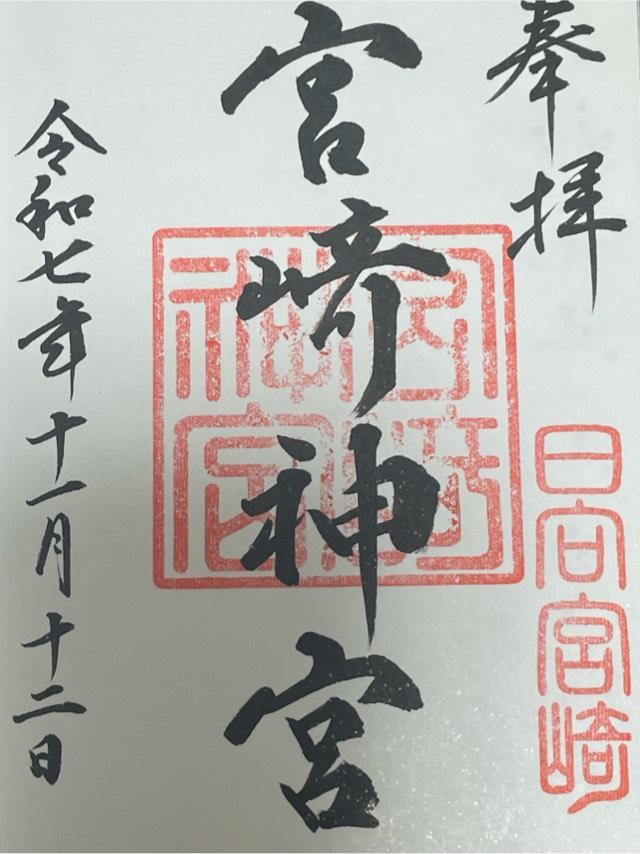 奉拝
日向宮崎
宮崎神宮
宮崎神宮
令和七年十一月十二日